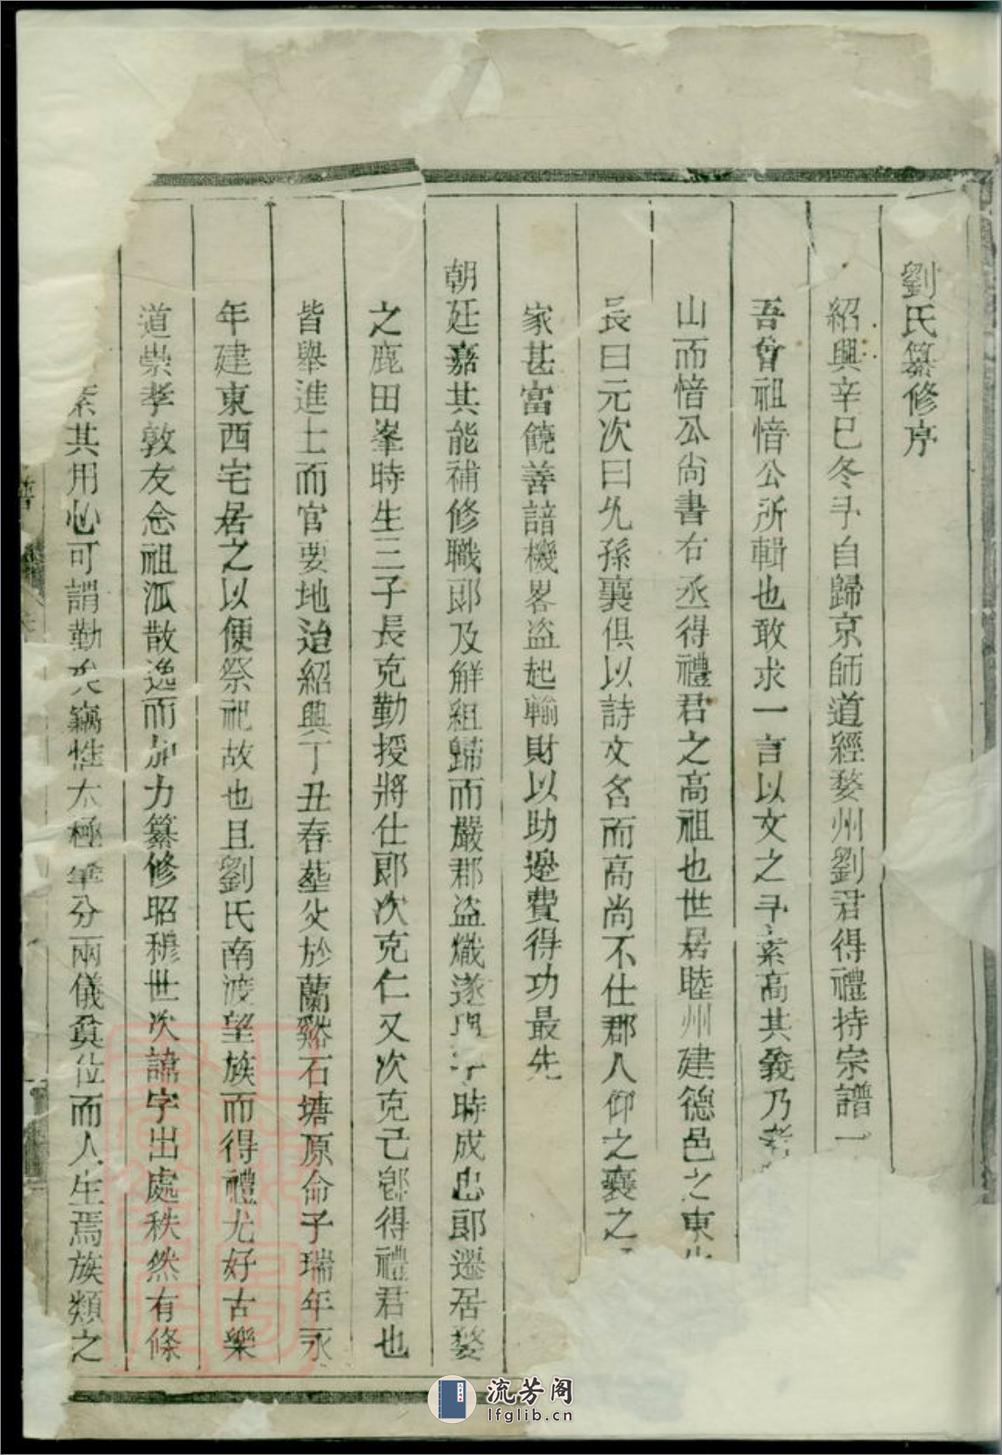 劉氏纂修序
紹興辛巳冬予自歸京師道經婺州劉君得禮持宗譜一
吾曾祖愔公所輯也敢求一言以文之予素高其義乃考
山而愔公尚書右丞得禮君之高祖也世居睦州建德邑之東
長曰元次曰允孫襄俱以詩文名而高尚不仕郡人仰之襄之
家甚富饒善諳機畧盜起輸財以助邊費得功最先
朝廷嘉其能補修職郎及解組歸而嚴郡盜熾遂與子時成忠郎遷居婺
之鹿田峯時生三子長克勤授將仕郎次克仁又次克己卽得禮君也
皆舉進士而官要地治紹興丁丑春塟父於蘭谿石塘原命子瑞年永
年建東西宅居之以便祭祀故也且劉氏南渡望族而得禮尤好古樂
道崇孝敦友念祖派散逸而加力纂修昭穆世次諱字出處秩然有條
紊其用心可謂勤矣竊惟太極肇分兩儀奠位而人生焉族類之
流芳阁
lfglib.cn